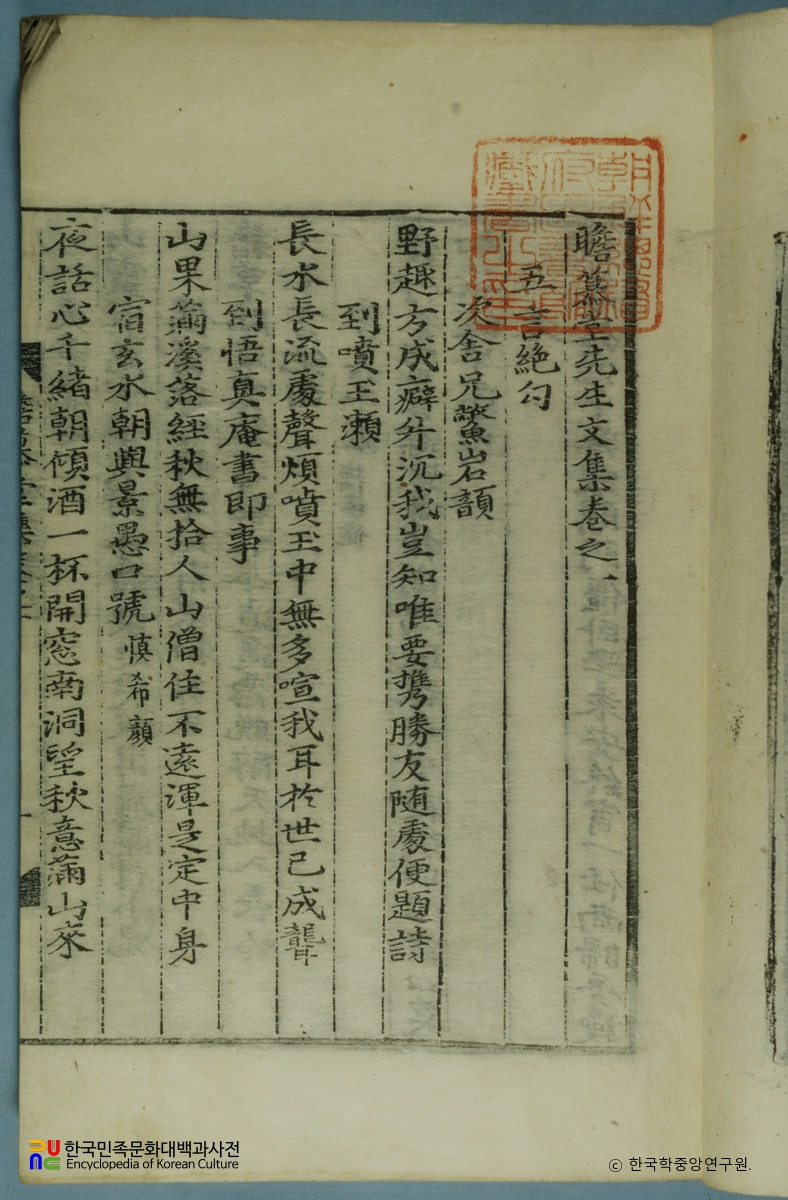 瞻慕堂先生文集卷之一
五言絶句
次舍兄鷲岩韻
野趣方成癖升沉我豈知唯要携勝友随處便題詩
到噴玉瀨
長水長流處聲煩噴玉中無多喧我耳於世已成聾
到悟真庵書即事
山果滿溪落經秋無拾人山僧住不遠渾是定中身
宿玄水朝與景愚口號 慎希顔
夜話心千緒朝傾酒一杯開窓南洞望秋意滿山來
한국민족문화대백과사전
Encyclopedia of Korean Culture
© 한국학중앙연구원.